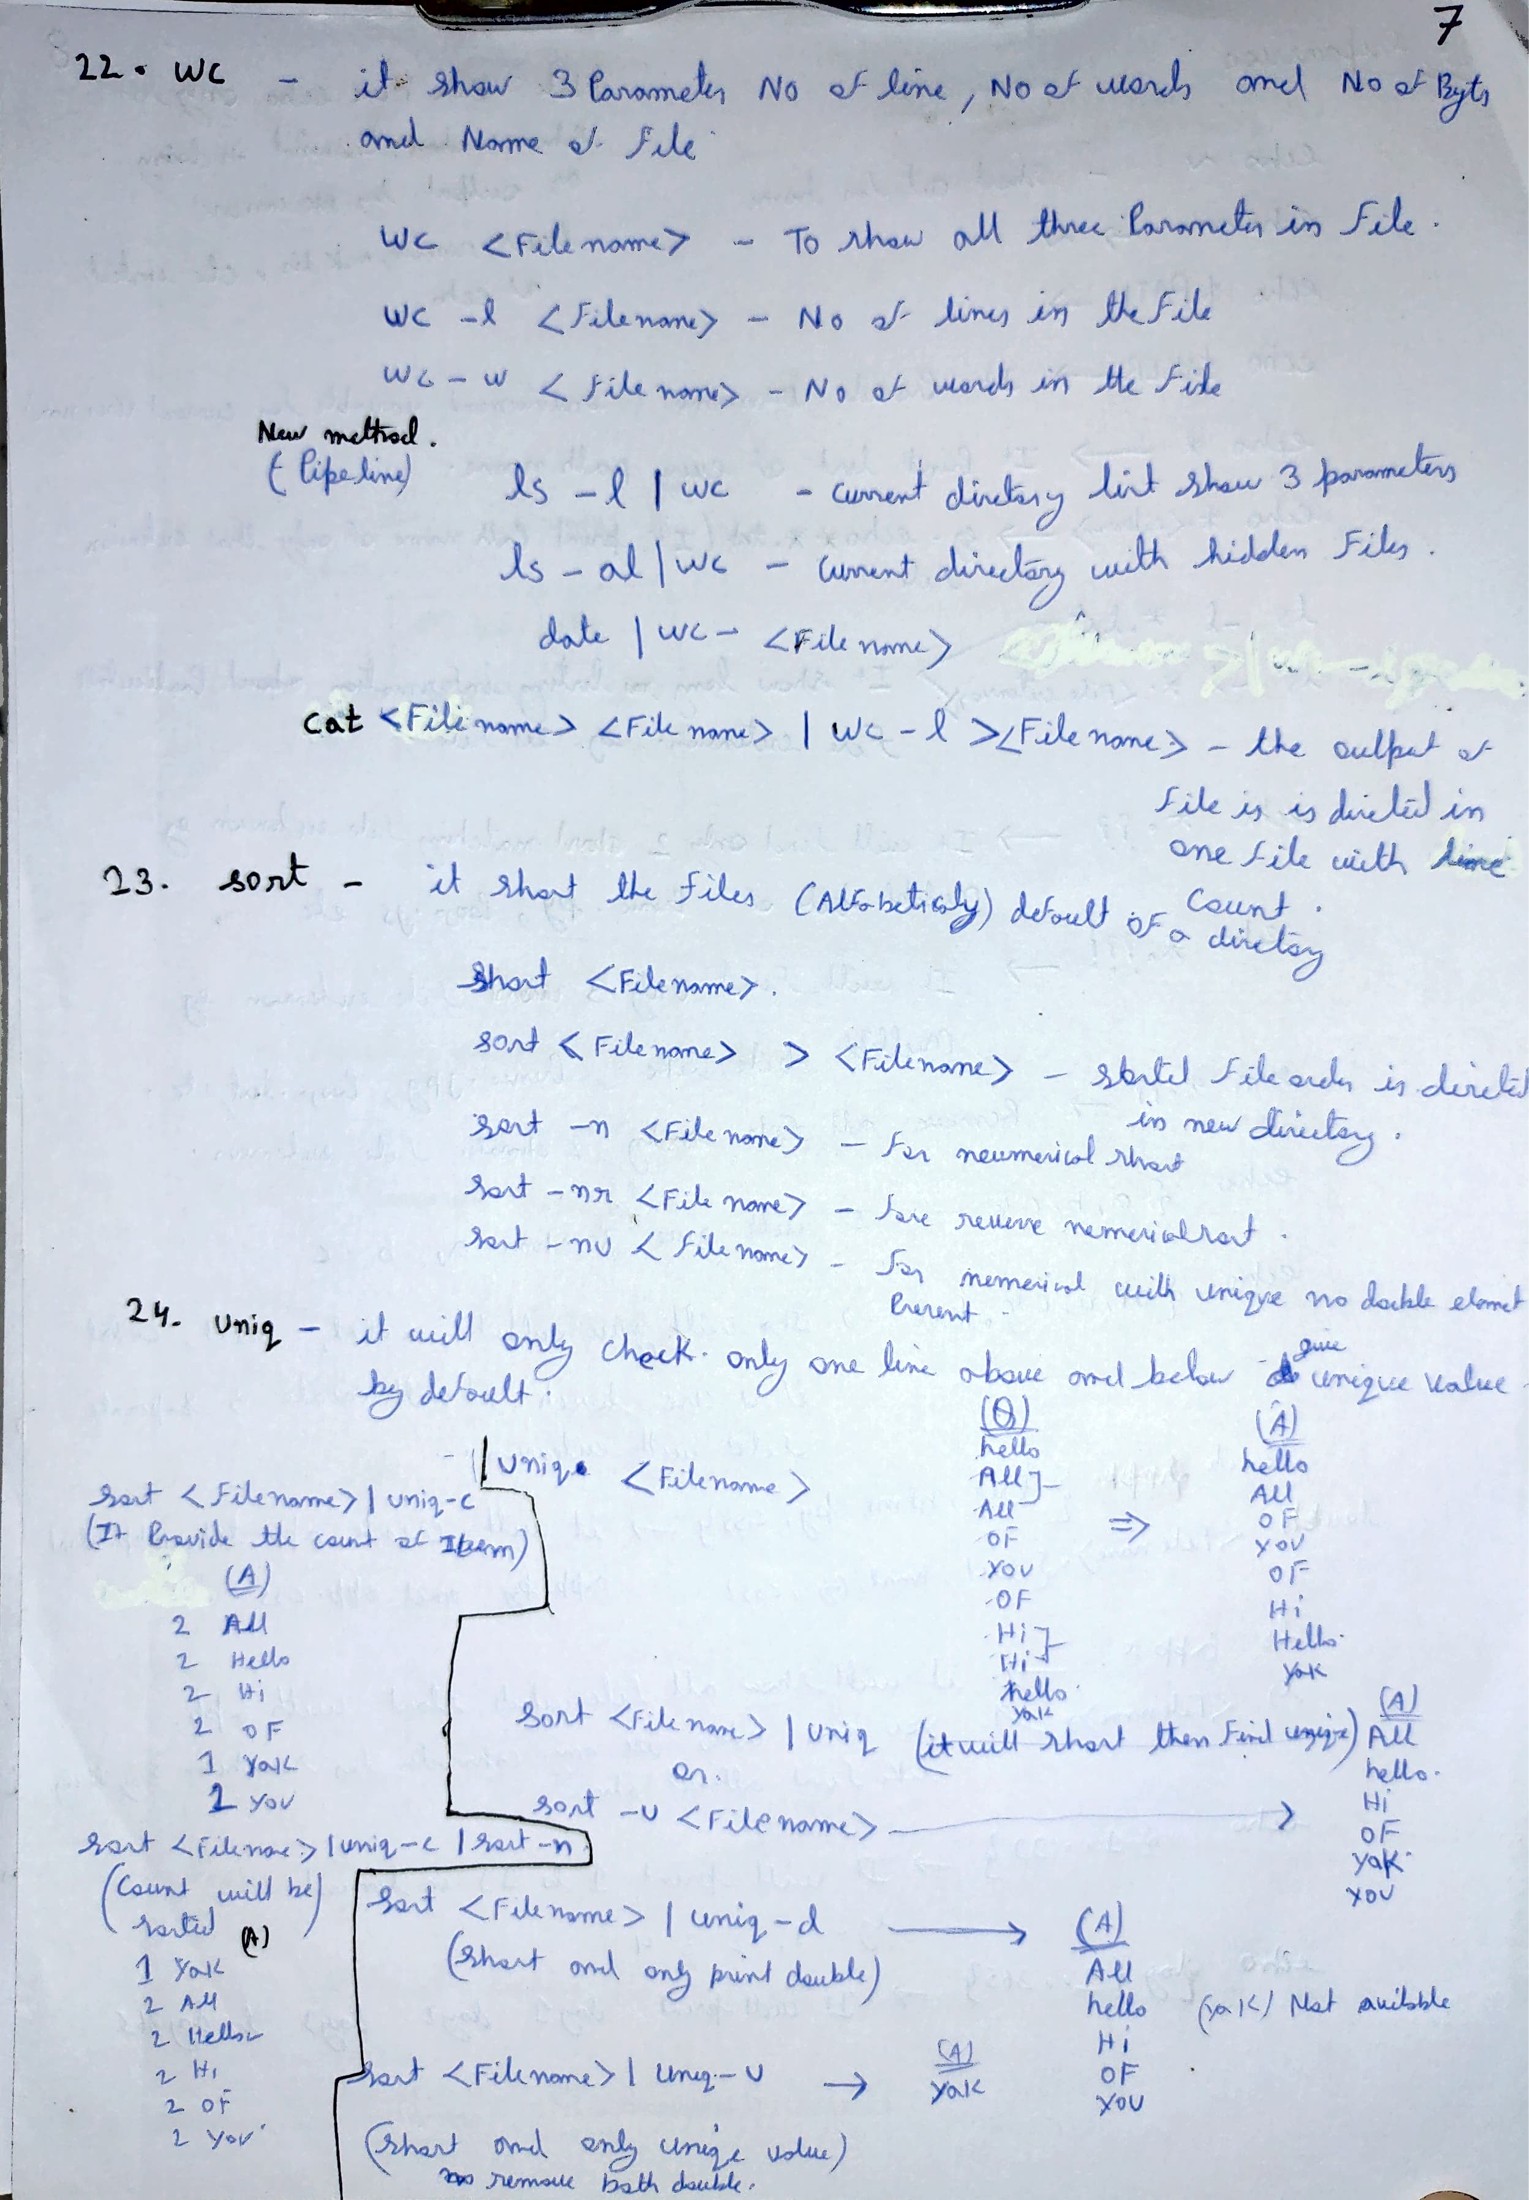 7
22. WC - it show 3 Parameter No of line, No of words and No of Byts
and Name of File
WC <File name> - To show all three Parameter in File.
WC -l <Filename> - No of lines in the File
WC -w <File name> - No of words in the File
New method.
(Pipeline)
ls -l | WC - current diretory list show 3 parameters
ls -al | WC - current directory with hidden Files.
date | WC - <File name>
Cat <File name> <File name> | WC -l > <File name> - the output of
File is is directed in
one File with line
Count.
23. Sort - it short the Files (Alfabeticaly) default of a diretory
Short <Filename>.
Sort <File name> > <Filename> - started File order is directed
in new directory.
Sort -n <File name> - For neumerical short
Sort -nr <File name> - Fore reverse nemerical sort.
Sort -nu <File name> - For nemerical with unique no double elemet
Present.
24. Uniq - it will only check only one line above and below give unique value
by default.
| Uniq <Filename>
(Q)
hello
All
All
OF
YOU
OF
Hi
Hi
hello
Yak
⇒
(A)
hello
All
OF
YOU
OF
Hi
Hello
Yak
Sort <Filename> | Uniq -c
(It Provide the count of Item)
(A)
2 All
2 Hello
2 Hi
2 OF
1 Yak
1 YOU
Sort <File name> | Uniq (it will short then Find unique)
or.
Sort -U <File name> →
(A)
All
hello.
Hi
OF
Yak
YOU
Sort <Filename> | Uniq -c | Sort -n
(Count will be
sorted)
(A)
1 Yak
2 All
2 Hello
2 Hi
2 OF
2 YOU
Sort <File name> | uniq -d →
(Short and only print double)
(A)
All
hello
Hi
OF
YOU
(Yak) Not avilable
Sort <File name> | Uniq -U →
(A)
Yak
(Short and only unique value)
remove both double.